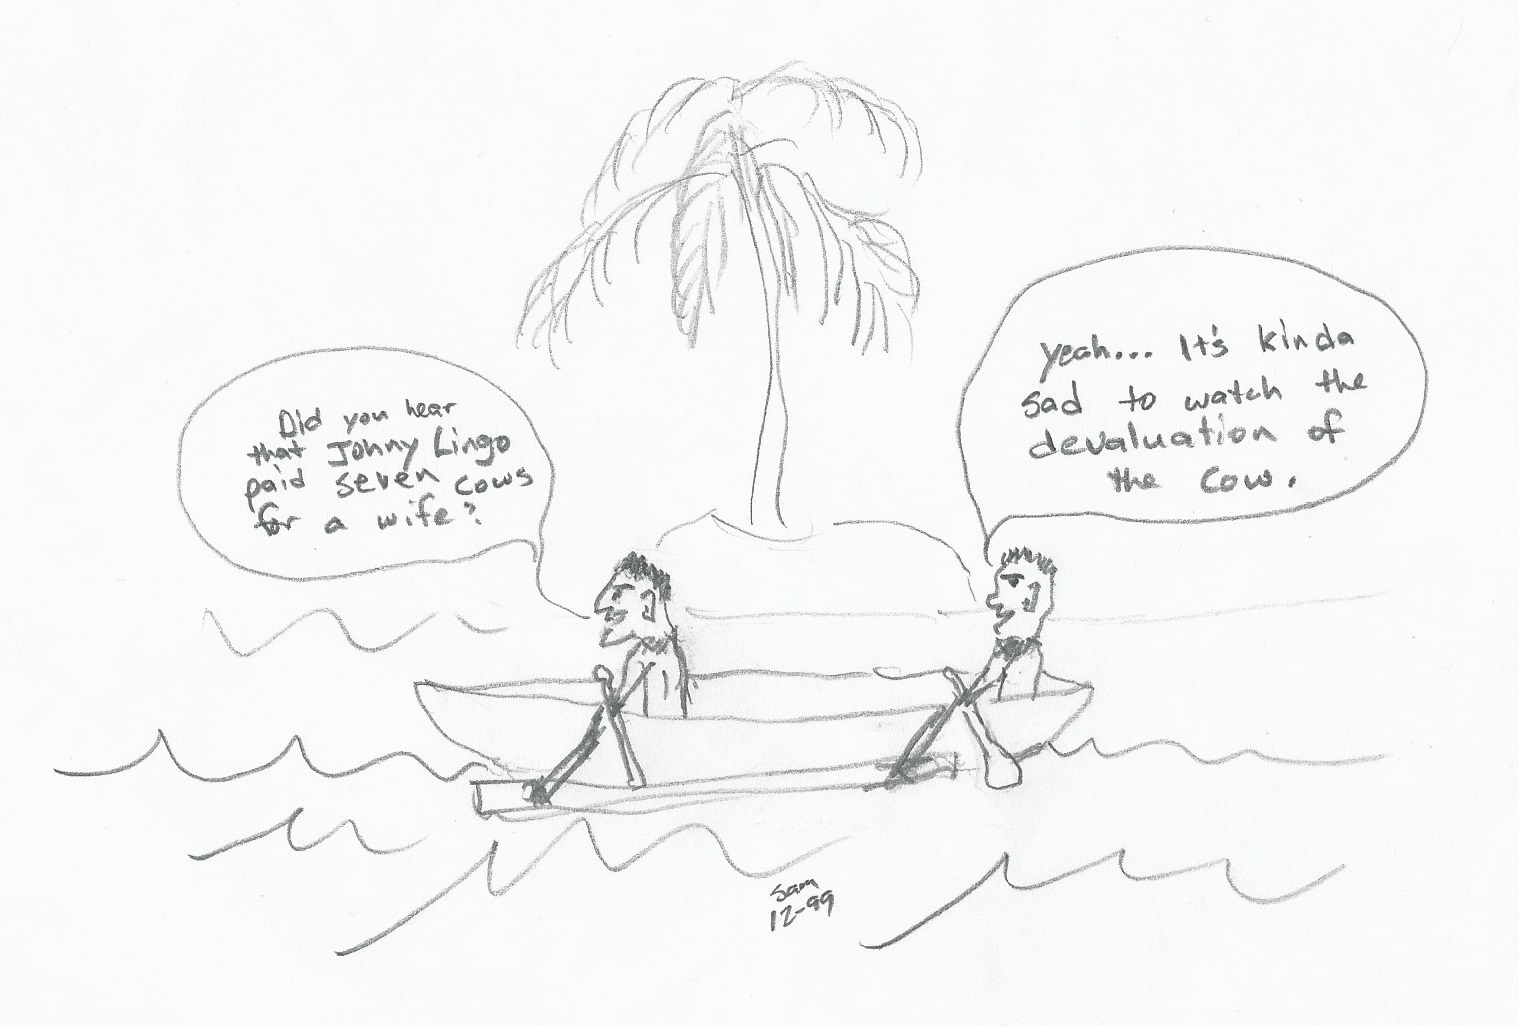 Did you hear
that Johny Lingo
paid seven cows
for a wife?
yeah... It's kinda
sad to watch the
devaluation of
the cow.
Sam
12-99